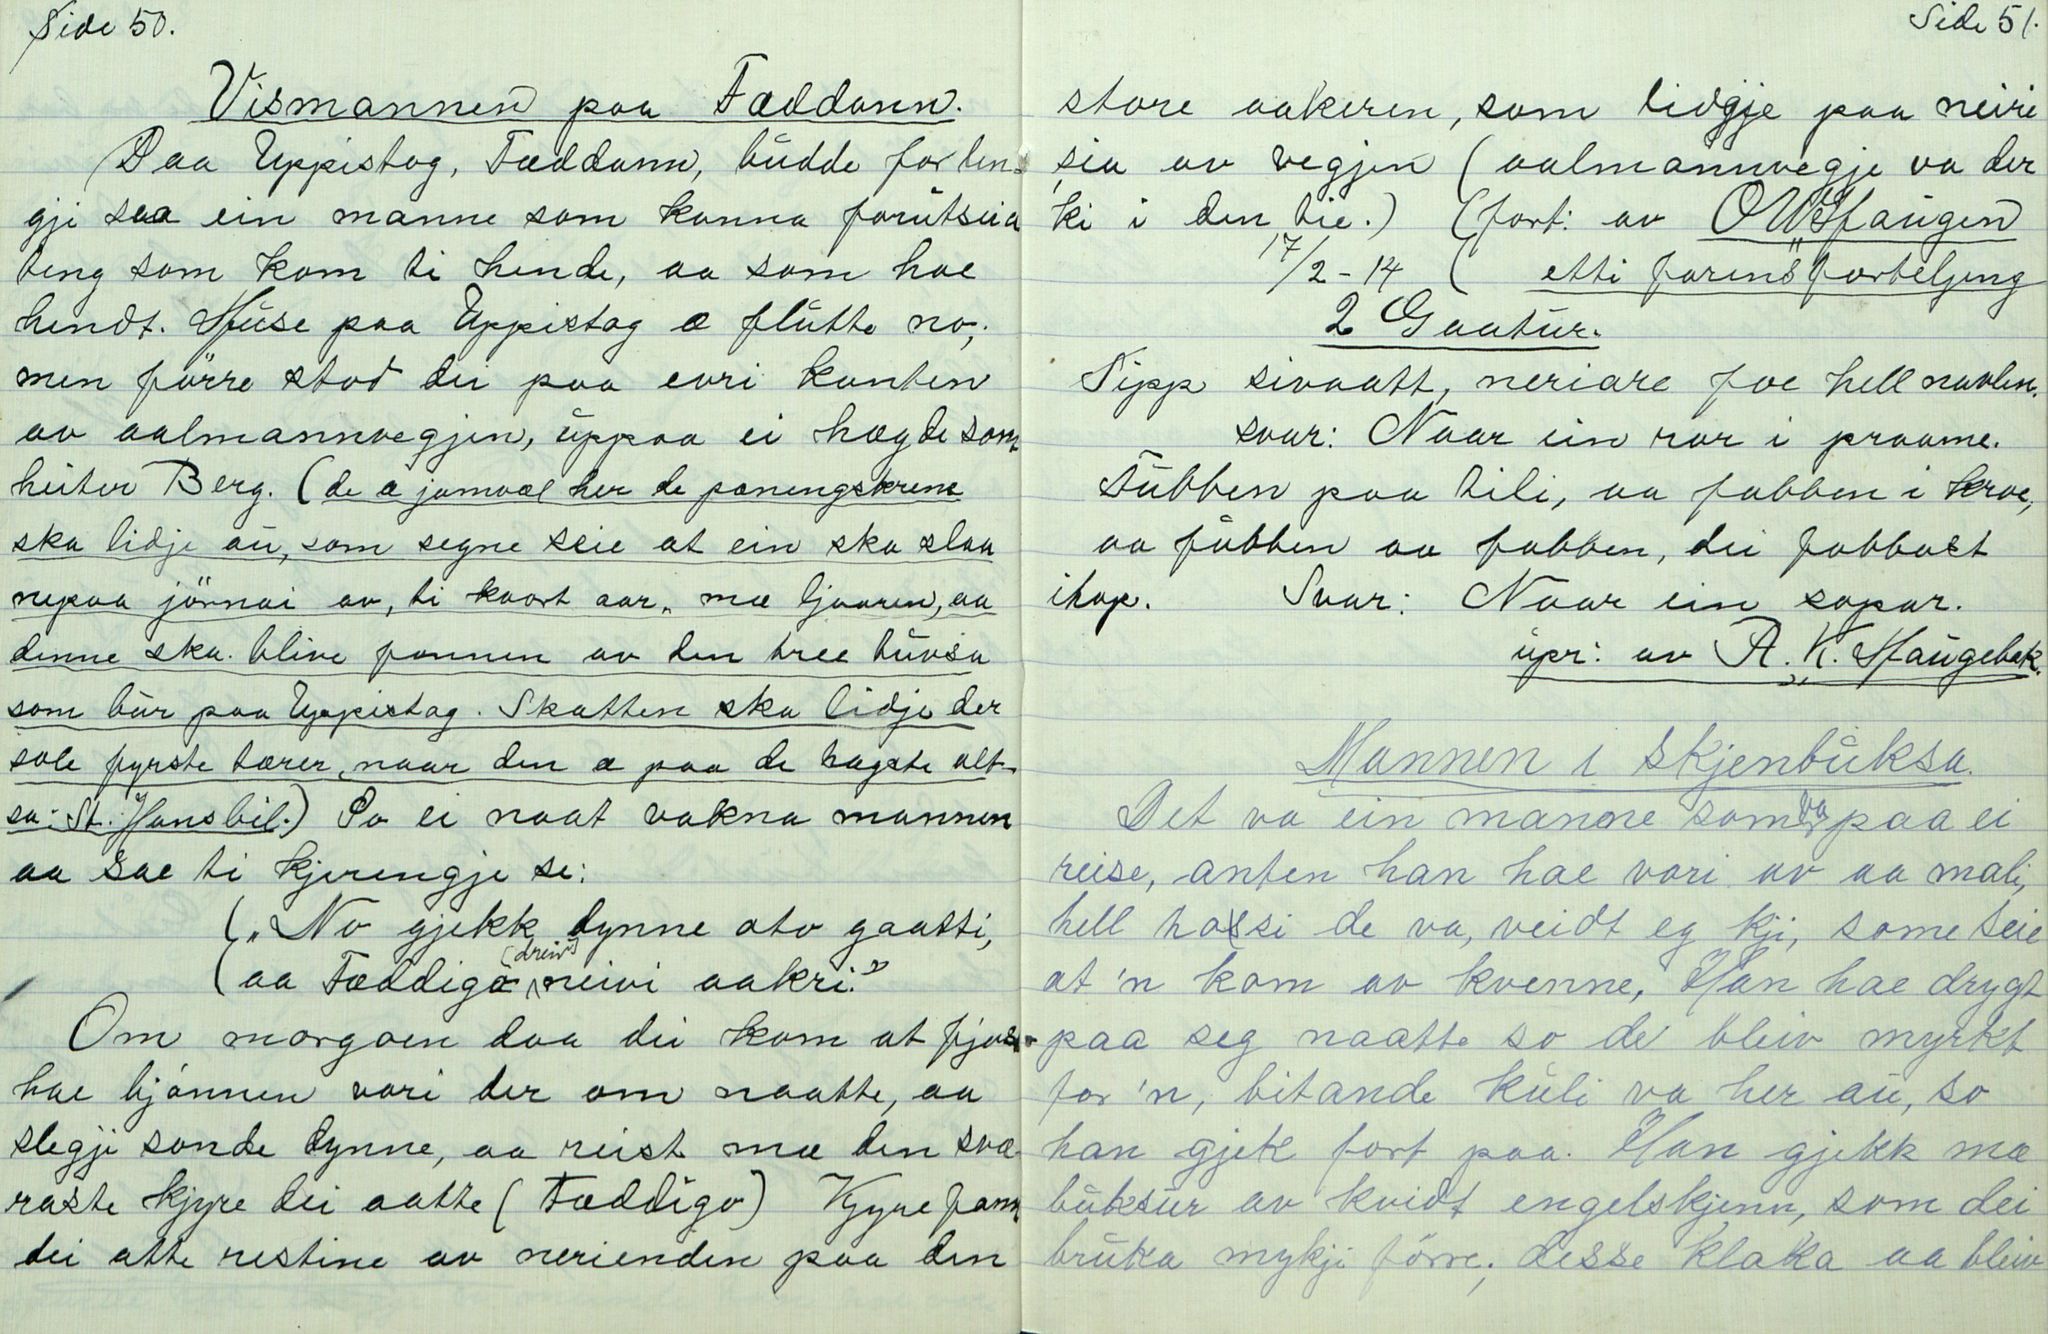 Side 50.
Vismannen paa Fæddann.
Paa Uppistog, Fæddann, budde for len-
gji saa ein manne som kunna forutseia
ting som kom ti hende, aa som hae
hendt. Huse paa Uppistog æ flutte no;
men förre stod dei paa evri kanten
av aalmannvegjen, uppaa ei høgde som
heiter Berg. (de æ jamvæl her de pæningskrine
ska lidje au, som segne seie at ein ska slaa
nepaa jönnai av, ti kvart aar, mæ ljaaren, aa
denne ska blive fonnen av den tree tüvsa
som bur paa Uppistog. Skatten ska lidje der
sole fyrste tærer, naar den æ paa de høgste alt-
sa: St. Hansbil.) So ei naat vakna mannen
aa sae ti kjeringje si:
("No gjekk dynne ato gaatti,
(drein)
(aa Fæddigo neivi aakri."
Om morgoen daa dei kom at fjøs-
hae bjønnen vori der om naatte, aa
slegji sonde dynne, aa reist mæ den svæ-
raste kjyre dei aatte (Fæddigo) Kjyre fann
dei atte restine av nerienden paa den
Side 51.
store aakeren, som lidgje paa neiri
sia av vegjen (aalmannvegje va der
ki i den tie.) (fort: av O W Haugen
17/2-14 ( etti farens forteljing
2 Gaatur.
Sipp sivaatt, neriare foe hell navlen.
svar: Naar ein ror i praame.
Fubben paa tili, aa fabben i kroe,
aa fubben aa fabben, dei fabbast
ihop. Svar: Naar ein sopar.
upr: av A. K. Haugebak.
Mannen i skjenbuksa.
Det va ein manne som va paa ei
reise, anten han hae vori av aa mali,
hell hossi de va, veidt eg kji, some seie
at 'n kom av kvenne, Han hae drygt
paa seg naatte so de bleiv myrkt
for 'n, bitande kuli va her au, so
han gjek fort paa. Han gjekk mæ
buksur av kvidt engelskjenn, som dei
bruka mykji förre; desse klaka aa bleiv